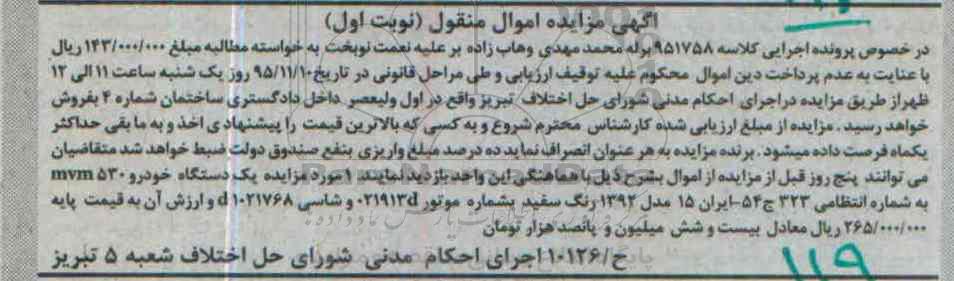 آگهی مزایده اموال منقول (نوبت اول)
در خصوص پرونده اجرایی کلاسه ۹۵۱۷۵۸ برله محمد مهدی وهاب زاده بر علیه نعمت نوبخت به خواسته مطالبه مبلغ ۱۴۳/۰۰۰/۰۰۰ ریال
با عنایت به عدم پرداخت دین اموال محکوم علیه توقیف ارزیابی و طی مراحل قانونی در تاریخ ۹۵/۱۱/۱۰ روز یک شنبه ساعت ۱۱ الی ۱۲
ظهر از طریق مزایده در اجرای احکام مدنی شورای حل اختلاف تبریز واقع در اول ولیعصر داخل دادگستری ساختمان شماره ۴ بفروش
خواهد رسید. مزایده از مبلغ ارزیابی شده کارشناس محترم شروع و به کسی که بالاترین قیمت را پیشنهادی اخذ و به ما بقی حداکثر
یکماه فرصت داده میشود. برنده مزایده به هر عنوان انصراف نماید ده درصد مبلغ واریزی بنفع صندوق دولت ضبط خواهد شد متقاضیان
می توانند پنج روز قبل از مزایده از اموال بشرح ذیل با هماهنگی این واحد بازدید نمایند ۱ مورد مزایده یک دستگاه خودرو mvm ۵۳۰
به شماره انتظامی ۳۲۳ ج ۵۴-ایران ۱۵ مدل ۱۳۹۲ رنگ سفید بشماره موتور ۰۲۱۹۱۳d و شاسی d۱۰۲۱۷۶۸ و ارزش آن به قیمت پایه
۲۶۵/۰۰۰/۰۰۰ ریال معادل بیست و شش میلیون و پانصد هزار تومان
ح/۱۰۱۲۶ اجرای احکام مدنی شورای حل اختلاف شعبه ۵ تبریز
۱۱۹